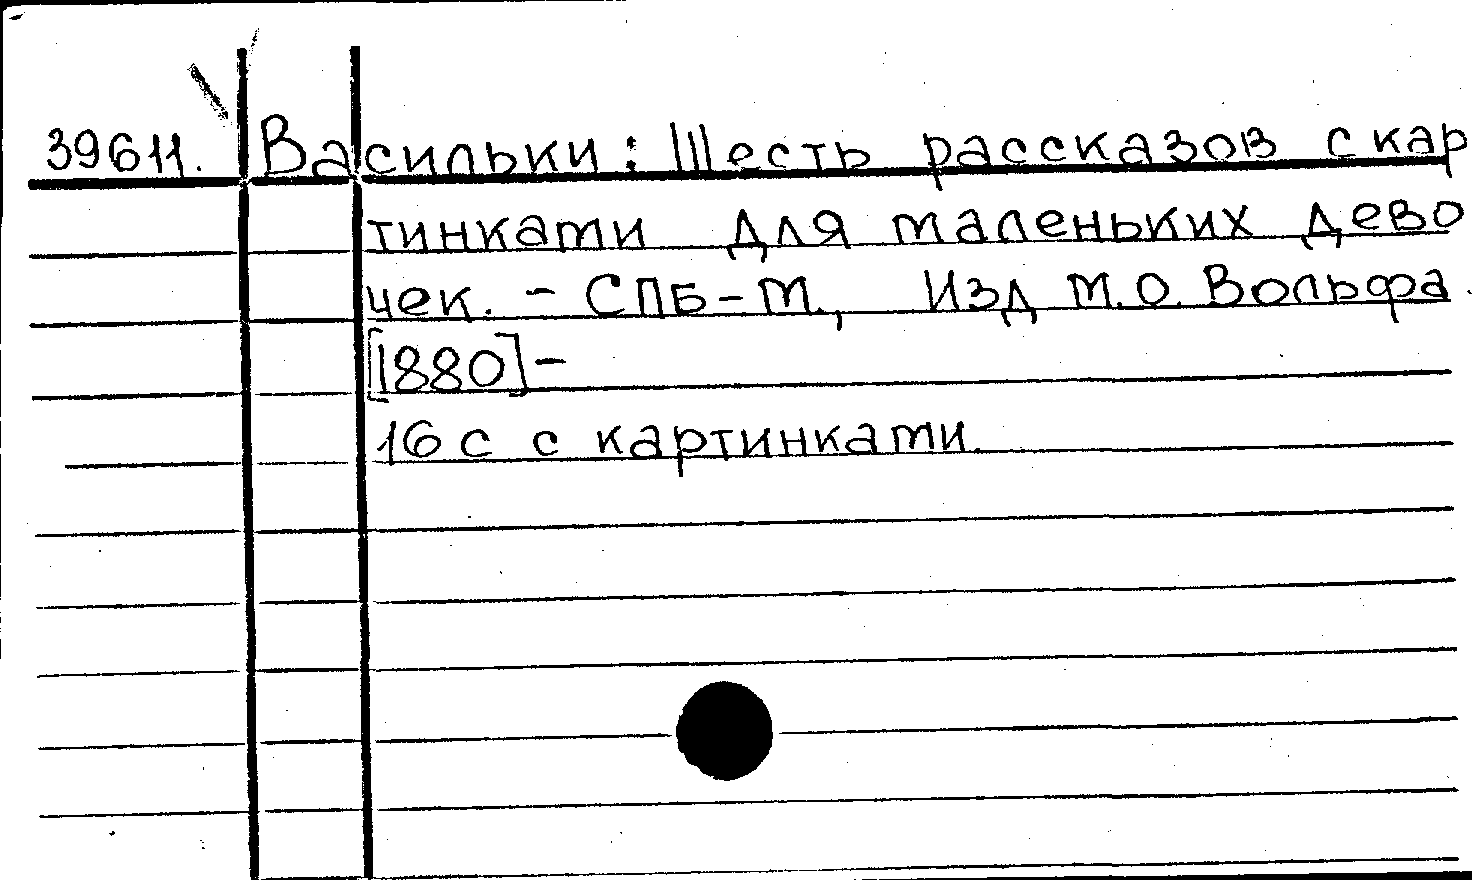 39611. Васильки: Шесть рассказов с кар
тинками для маленьких дево
чек. - СПБ-М., Изд М.О. Вольфа.
[1880]-
16 с с картинками.